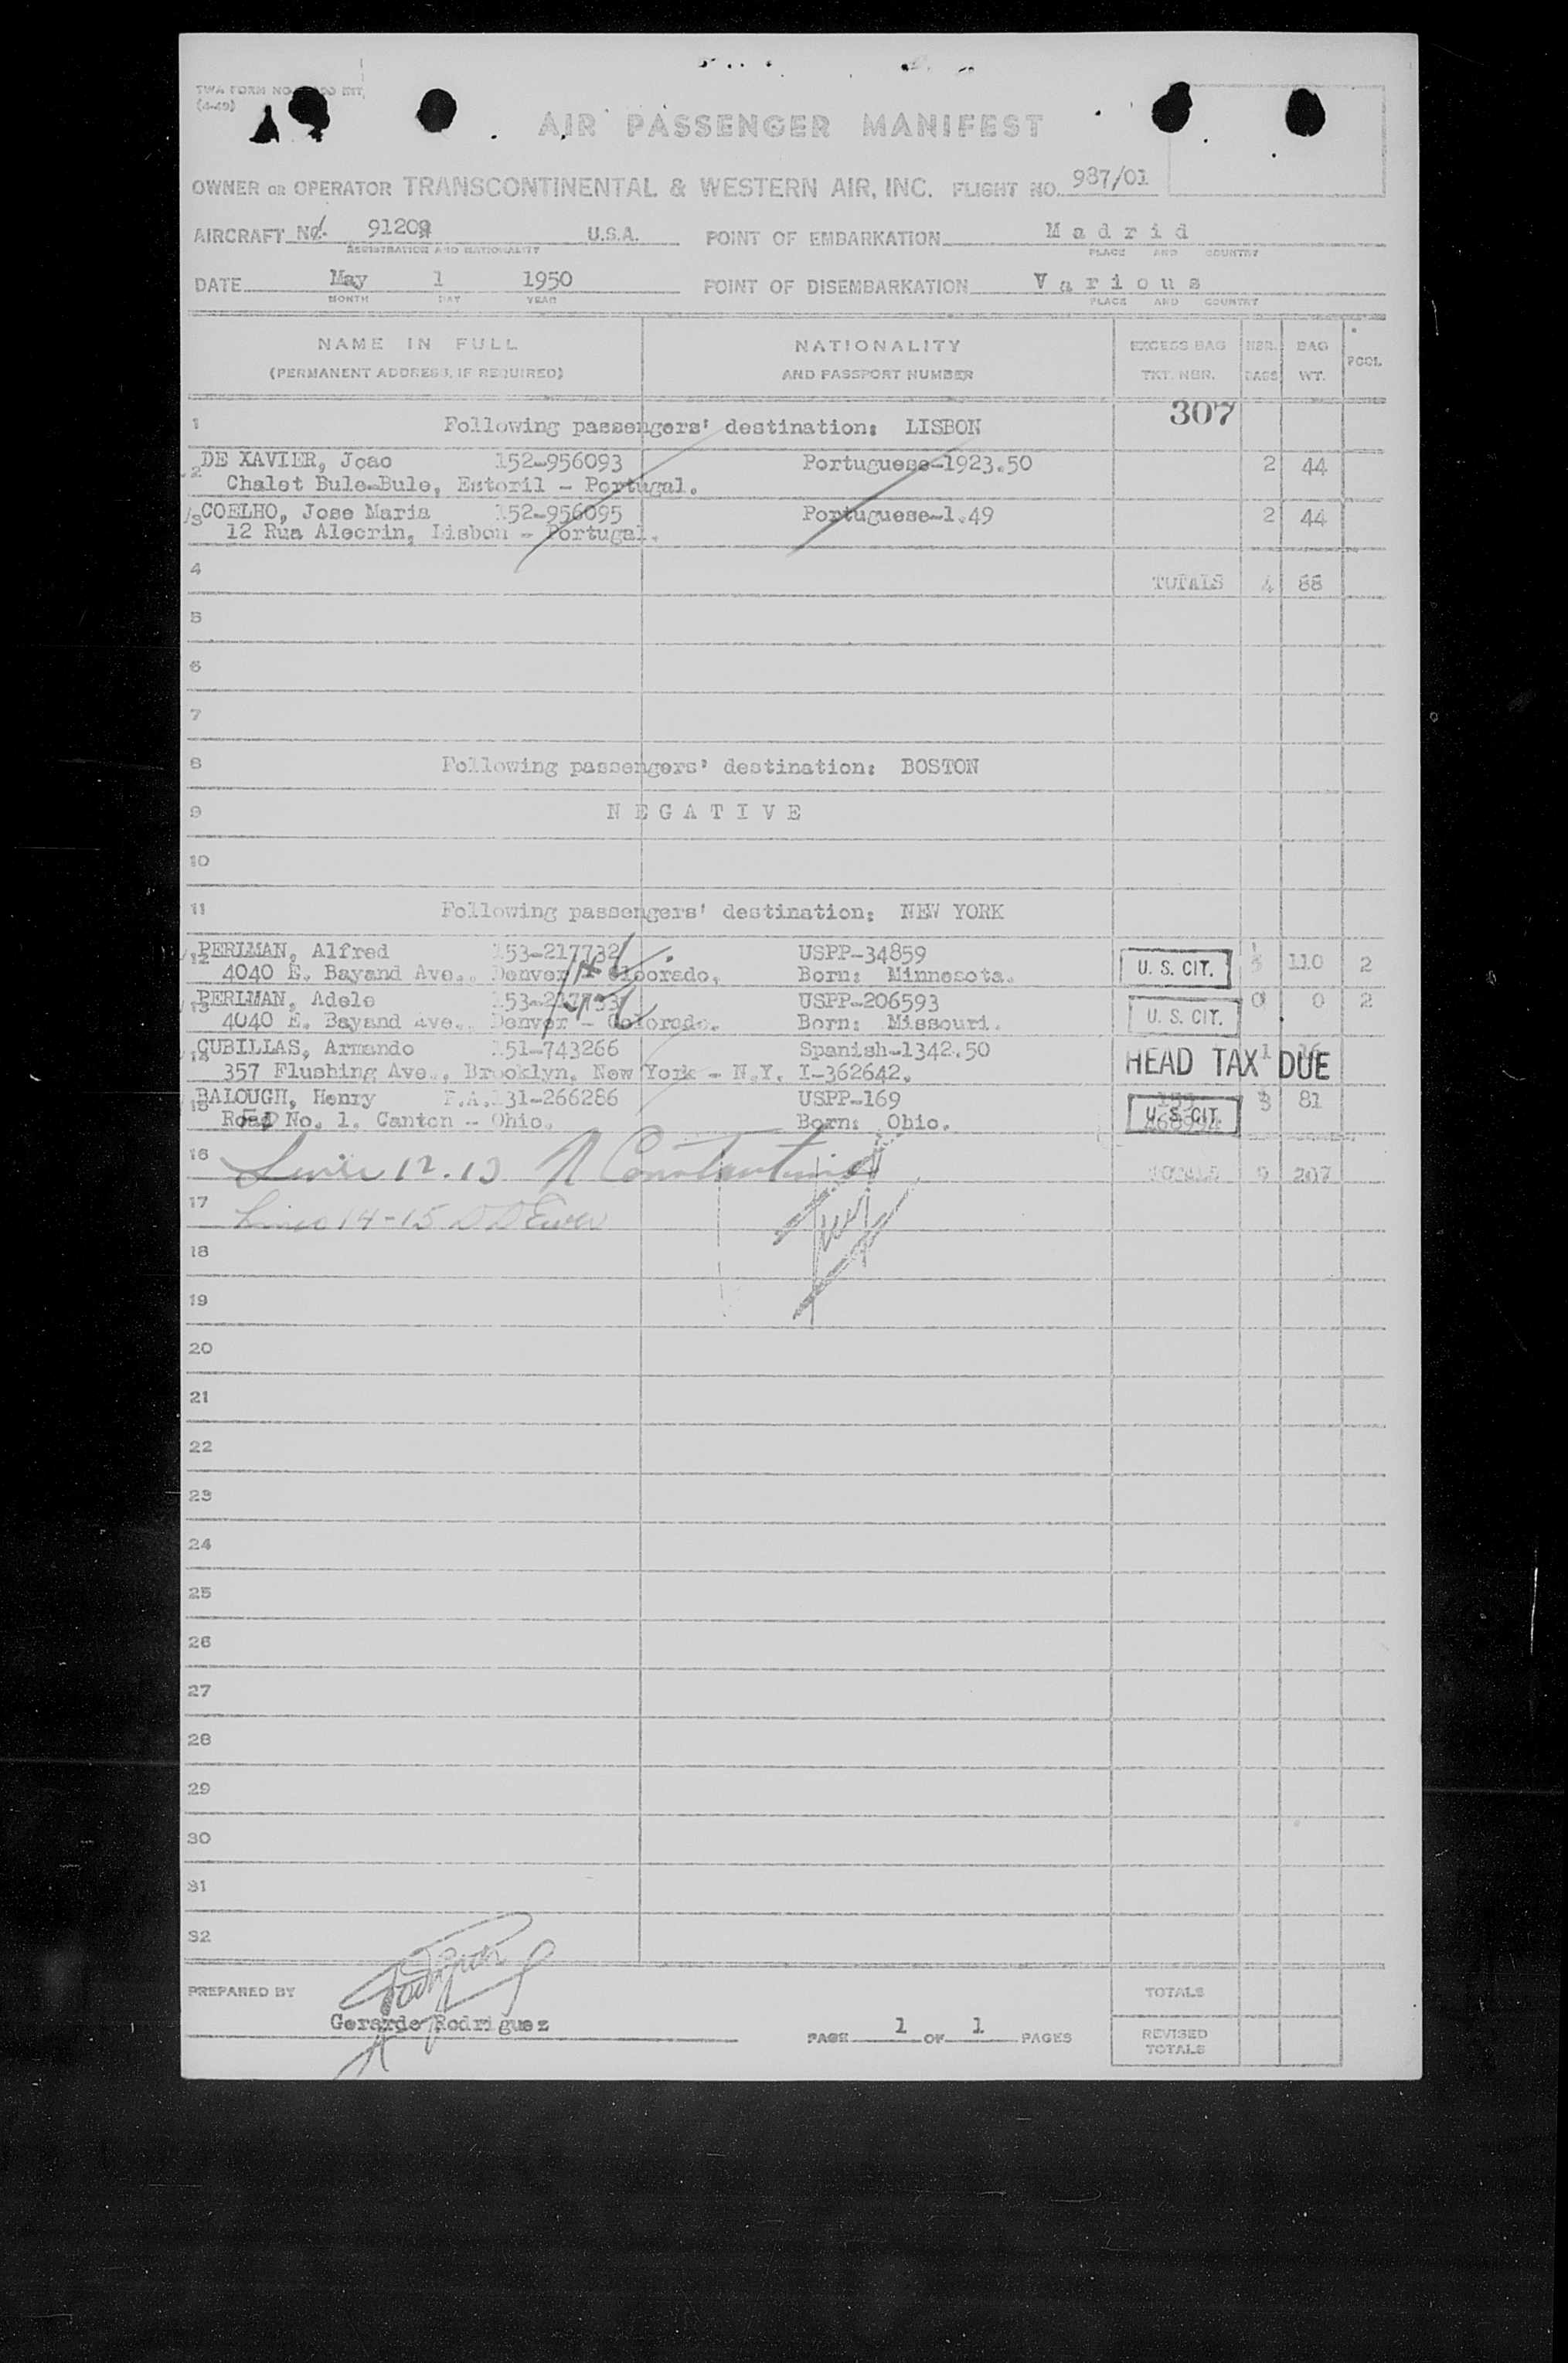 TWA FORM NO. INT.
(4-49)
AIR PASSENGER MANIFEST
OWNER OR OPERATOR TRANSCONTINENTAL & WESTERN AIR, INC. FLIGHT NO. 987/01
AIRCRAFT No. 91209 U.S.A. POINT OF EMBARKATION Madrid
REGISTRATION AND NATIONALITY PLACE AND COUNTRY
DATE May 1 1950 POINT OF DISEMBARKATION Various
MONTH DAY YEAR PLACE AND COUNTRY
NAME IN FULL NATIONALITY EXCESS BAG NBR. BAG POOL
(PERMANENT ADDRESS, IF REQUIRED) AND PASSPORT NUMBER TKT. NBR. BAGS WT.
307
1 Following passengers' destination: LISBON
2 DE XAVIER, Joao 152-956093 Portuguese-1923.50 2 44
Chalet Bule-Bule, Estoril - Portugal.
3 COELHO, Jose Maria 152-956095 Portuguese-1.49 2 44
12 Rua Alecrin, Lisbon - Portugal.
4 TOTALS 4 88
5
6
7
8 Following passengers' destination: BOSTON
9 NEGATIVE
10
11 Following passengers' destination: NEW YORK
12 PERLMAN, Alfred 153-217732 USPP-34859 U. S. CIT. 110 2
4040 E. Bayand Ave., Denver - Coloorado, Born: Minnesota.
13 PERLMAN, Adele 153-217733 USPP-206593 U. S. CIT. 0 0 2
4040 E. Bayand Ave., Denver - Colorado. Born: Missouri.
14 CUBILLAS, Armando 151-743266 Spanish-1342.50 HEAD TAX DUE 1 16
357 Flushing Ave., Brooklyn, New York - N.Y. I-362642,
15 BALOUGH, Henry F.A.131-266286 USPP-169 U. S. CIT. 3 81
Road No. 1. Canton - Ohio. Born: Ohio. 468994
16 Lines 12-13 N Constantine TOTALS 9 207
17 Lines 14-15
18
19
20
21
22
23
24
25
26
27
28
29
30
31
32
PREPARED BY TOTALS
Gerardo Rodriguez PAGE 1 OF 1 PAGES
REVISED
TOTALS